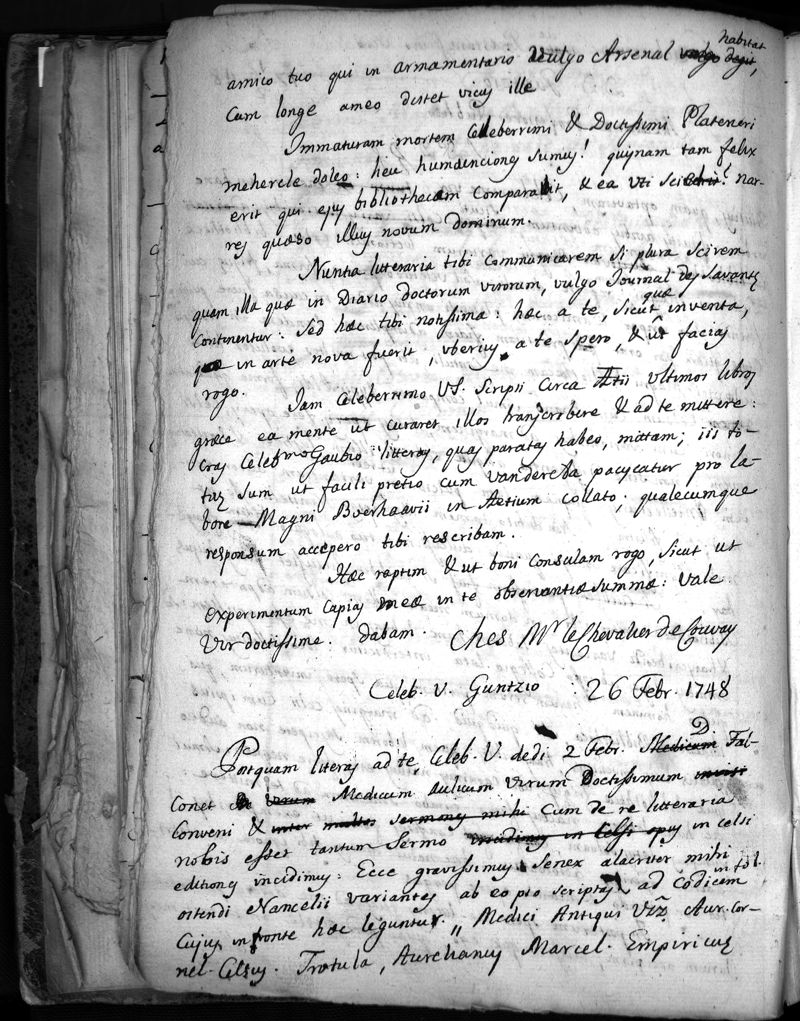 habitat
amico tuo qui in armamentario vulgo Arsenal vulgo degit,
Cum longe ameo distet vicus ille
Immaturam mortem Celeberrimi & Doctissimi Plateneri
mehercle doleo: heu humanciones sumus! quisnam tam felix
erit qui ejus bibliothecam comparabit, & ea uti sciet? nar-
res quæso illius novum dominum.
Nuntia litteraria tibi communicarem si plura scirem
quam illa quæ in Diario doctorum virorum, vulgo Journal des Savants
continentur: sed hæc tibi notissima: hæc a te, sicut quæ inventa,
quæ in arte nova fuerit, uberius a te spero, & ut facias
rogo.
Iam Celeberrimo VS. Scripsi circa Ætii ultimos libros
græce ea mente ut curaret illos transcribere & ad te mittere:
cras Celebmo Gaubio litteras, quas paratas habeo, mittam; iii to-
tus sum ut facili pretio cum vanderAa paciscatur pro la-
bore Magni Boerhaavii in Aetium collato; qualecumque
responsum accepero tibi rescribam.
Hæc raptim & ut boni consulam rogo, sicut ut
experimentum capias meæ in te observantiæ summæ: Vale
Vir doctissime. dabam. Ches Mr. le Chevalier de Couvay
Celeb. V. Guntzio 26 Febr. 1748
Postquam literas ad te, Celeb. V. dedi 2 Febr. Medicum D Fal-
conet virum Medicum Aulicum virum Doctissimum invisi
Conveni & inter multos sermones mihi cum de re litteraria
nobis esset tantum sermo incidimus in Celsi opus in celsi
editiones incidimus: Ecce gravissimus senex alacriter mihi
ostendi Nancelii variantes ab eo pro scriptas ad Codicem in fol.
Cujus in fronte hæc leguntur „ Medici Antiqui Viz. Aur. Cor-
nel. Celsus. Trotula, Aurelianus Marcel. Empiricus